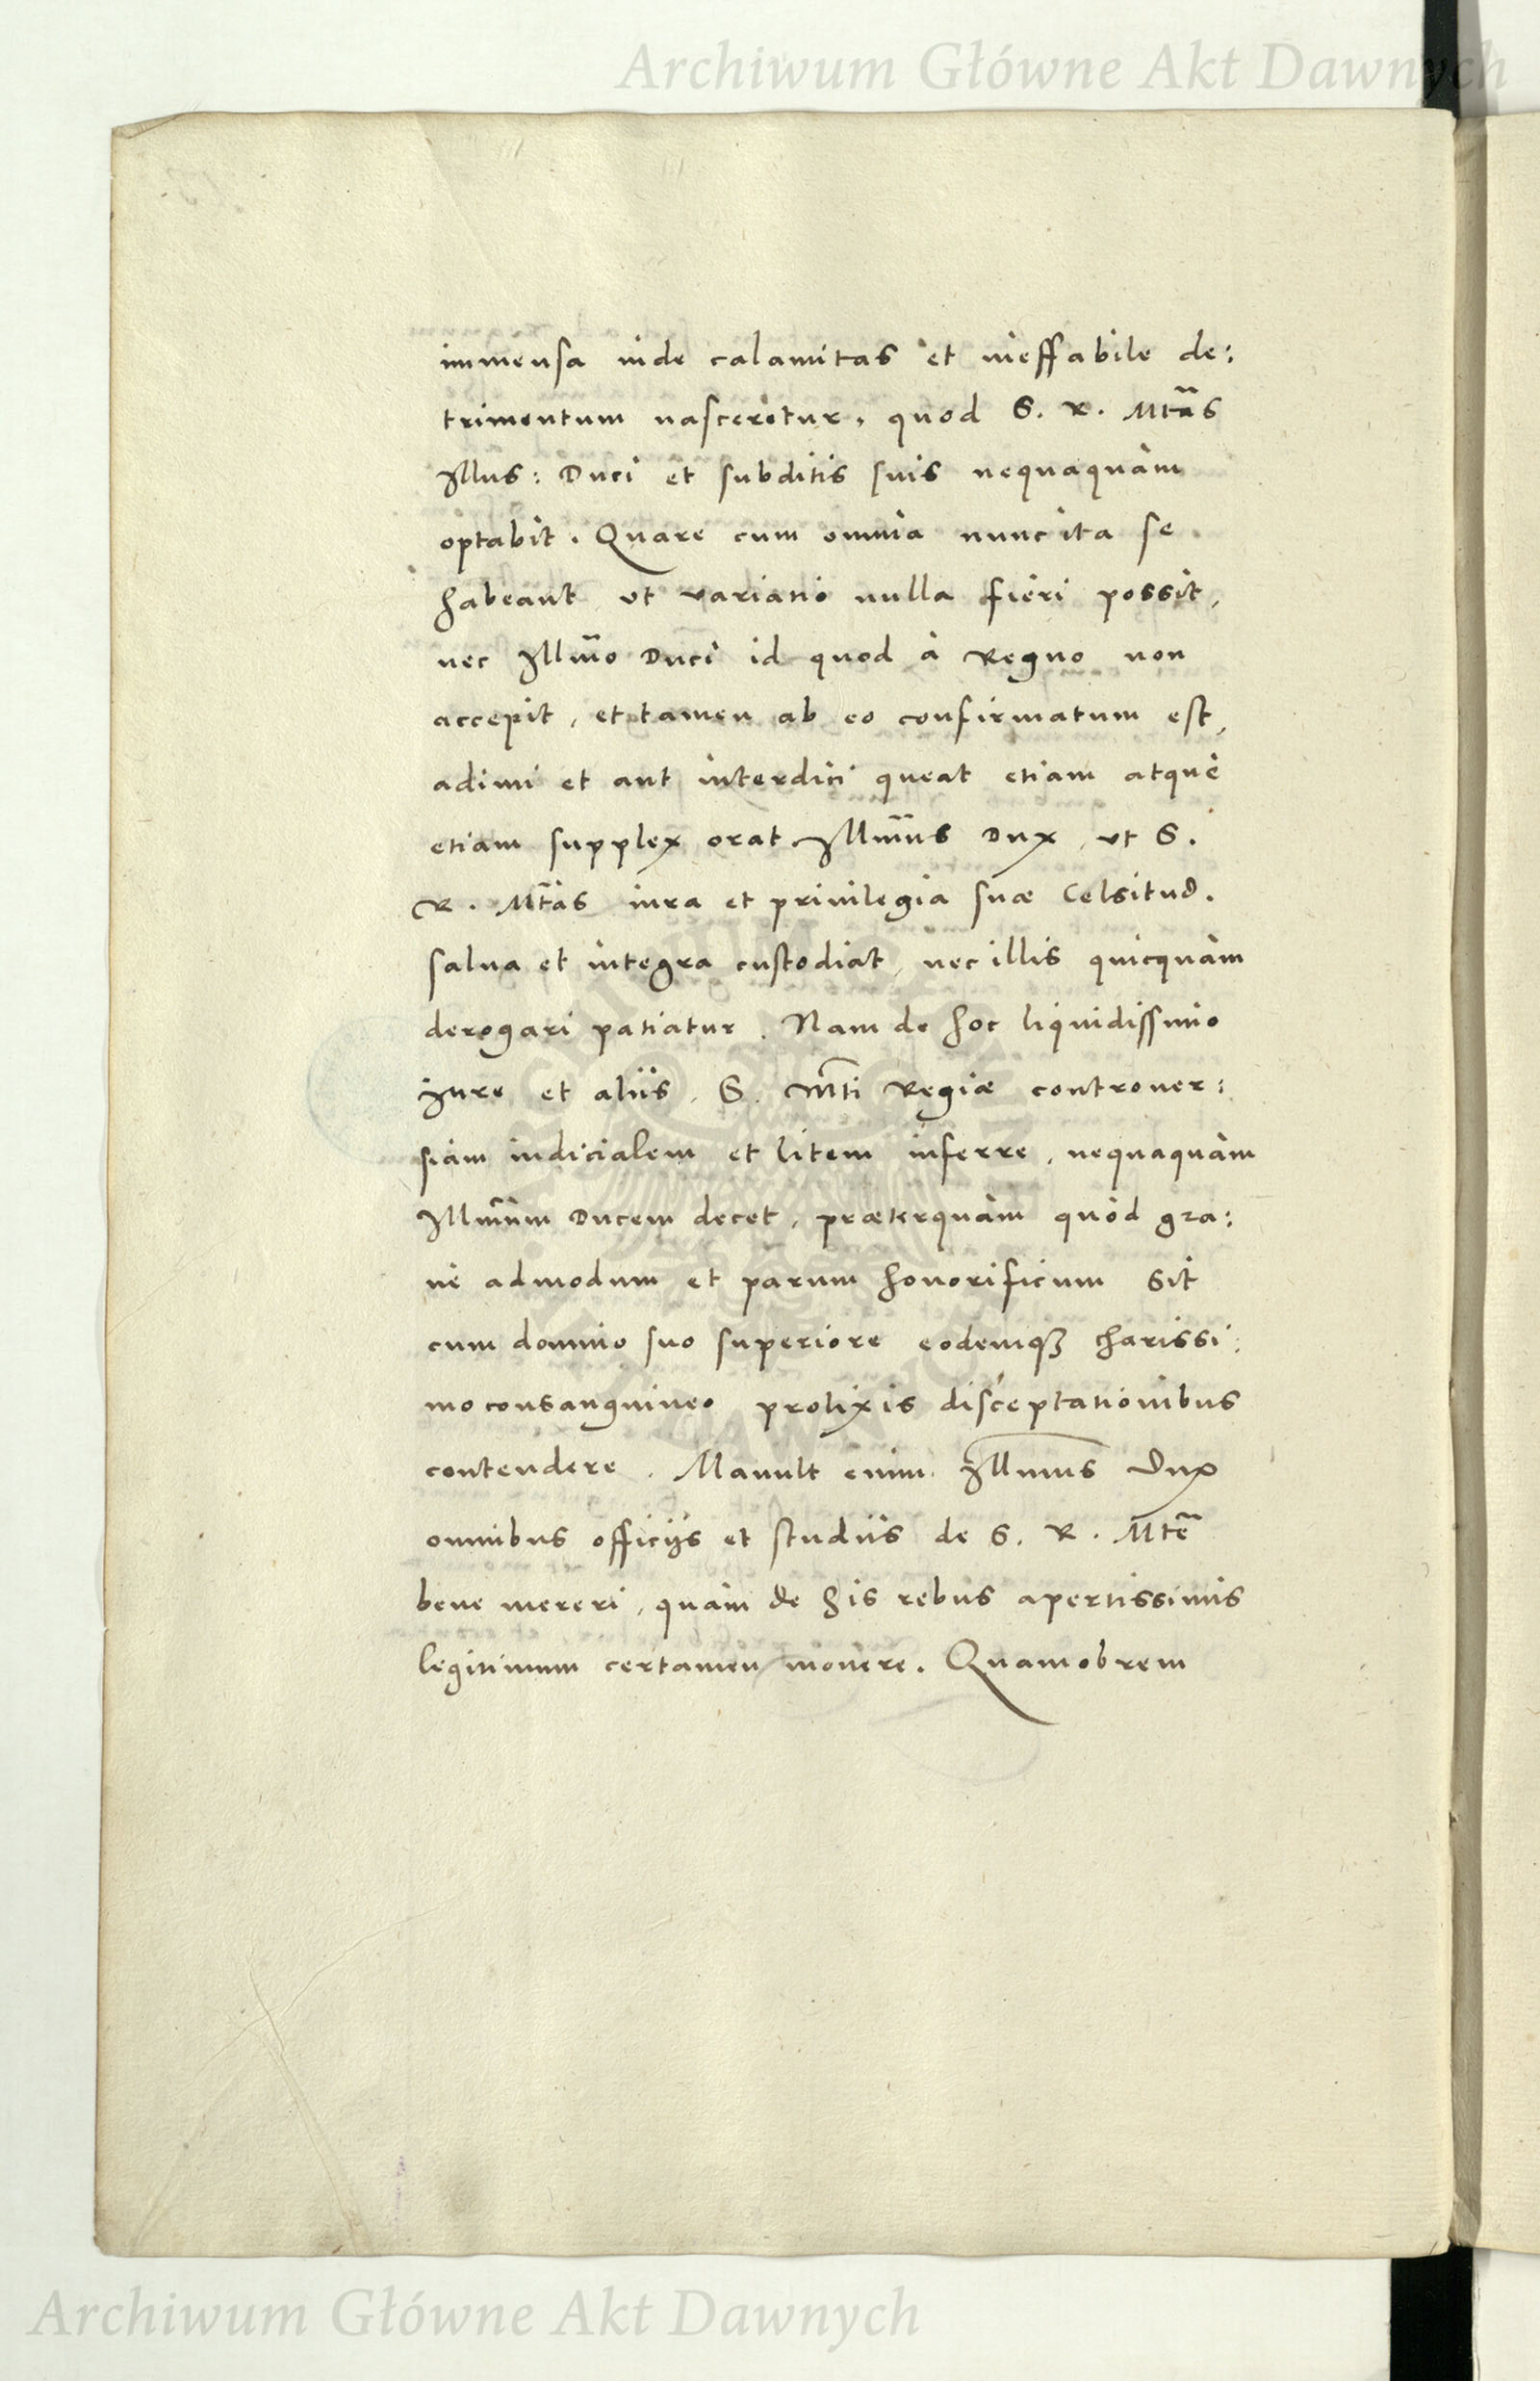 Archiwum Główne Akt Dawnych
immensa inde calamitas et ineffabile de:
trimentum nasceretur, quod S. R. Mtas
Illus: Duci et subditis suis nequaquam
optabit. Quare cum omnia nunc ita se
habeant, ut variatio nulla fieri possit,
nec Illmo Duci id quod à Regno non
accepit, et tamen ab eo confirmatum est,
adimi et aut interdici queat etiam atque
etiam supplex orat Illmus Dux, ut S.
R. Mtas iura et priuilegia suæ Celsitud.
salua et integra custodiat, nec illis quicquam
derogari patiatur. Nam de hoc liquidissimo
Jure et aliis, S. Mti Regiæ controuer:
siam iudicialem et litem inferre, nequaquàm
Illmum Ducem decet, præterquàm quòd gra:
ue admodum et parum honorificum sit
cum domino suo superiore eodemq3 charissi:
mo consanguineo prolixis disceptationibus
contendere. Mauult enim Illmus Dux
omnibus officijs et studiis de S. R. Mte
bene mereri, quàm de his rebus apertissimis
legitimum certamen mouere. Quamobrem
Archiwum Główne Akt Dawnych